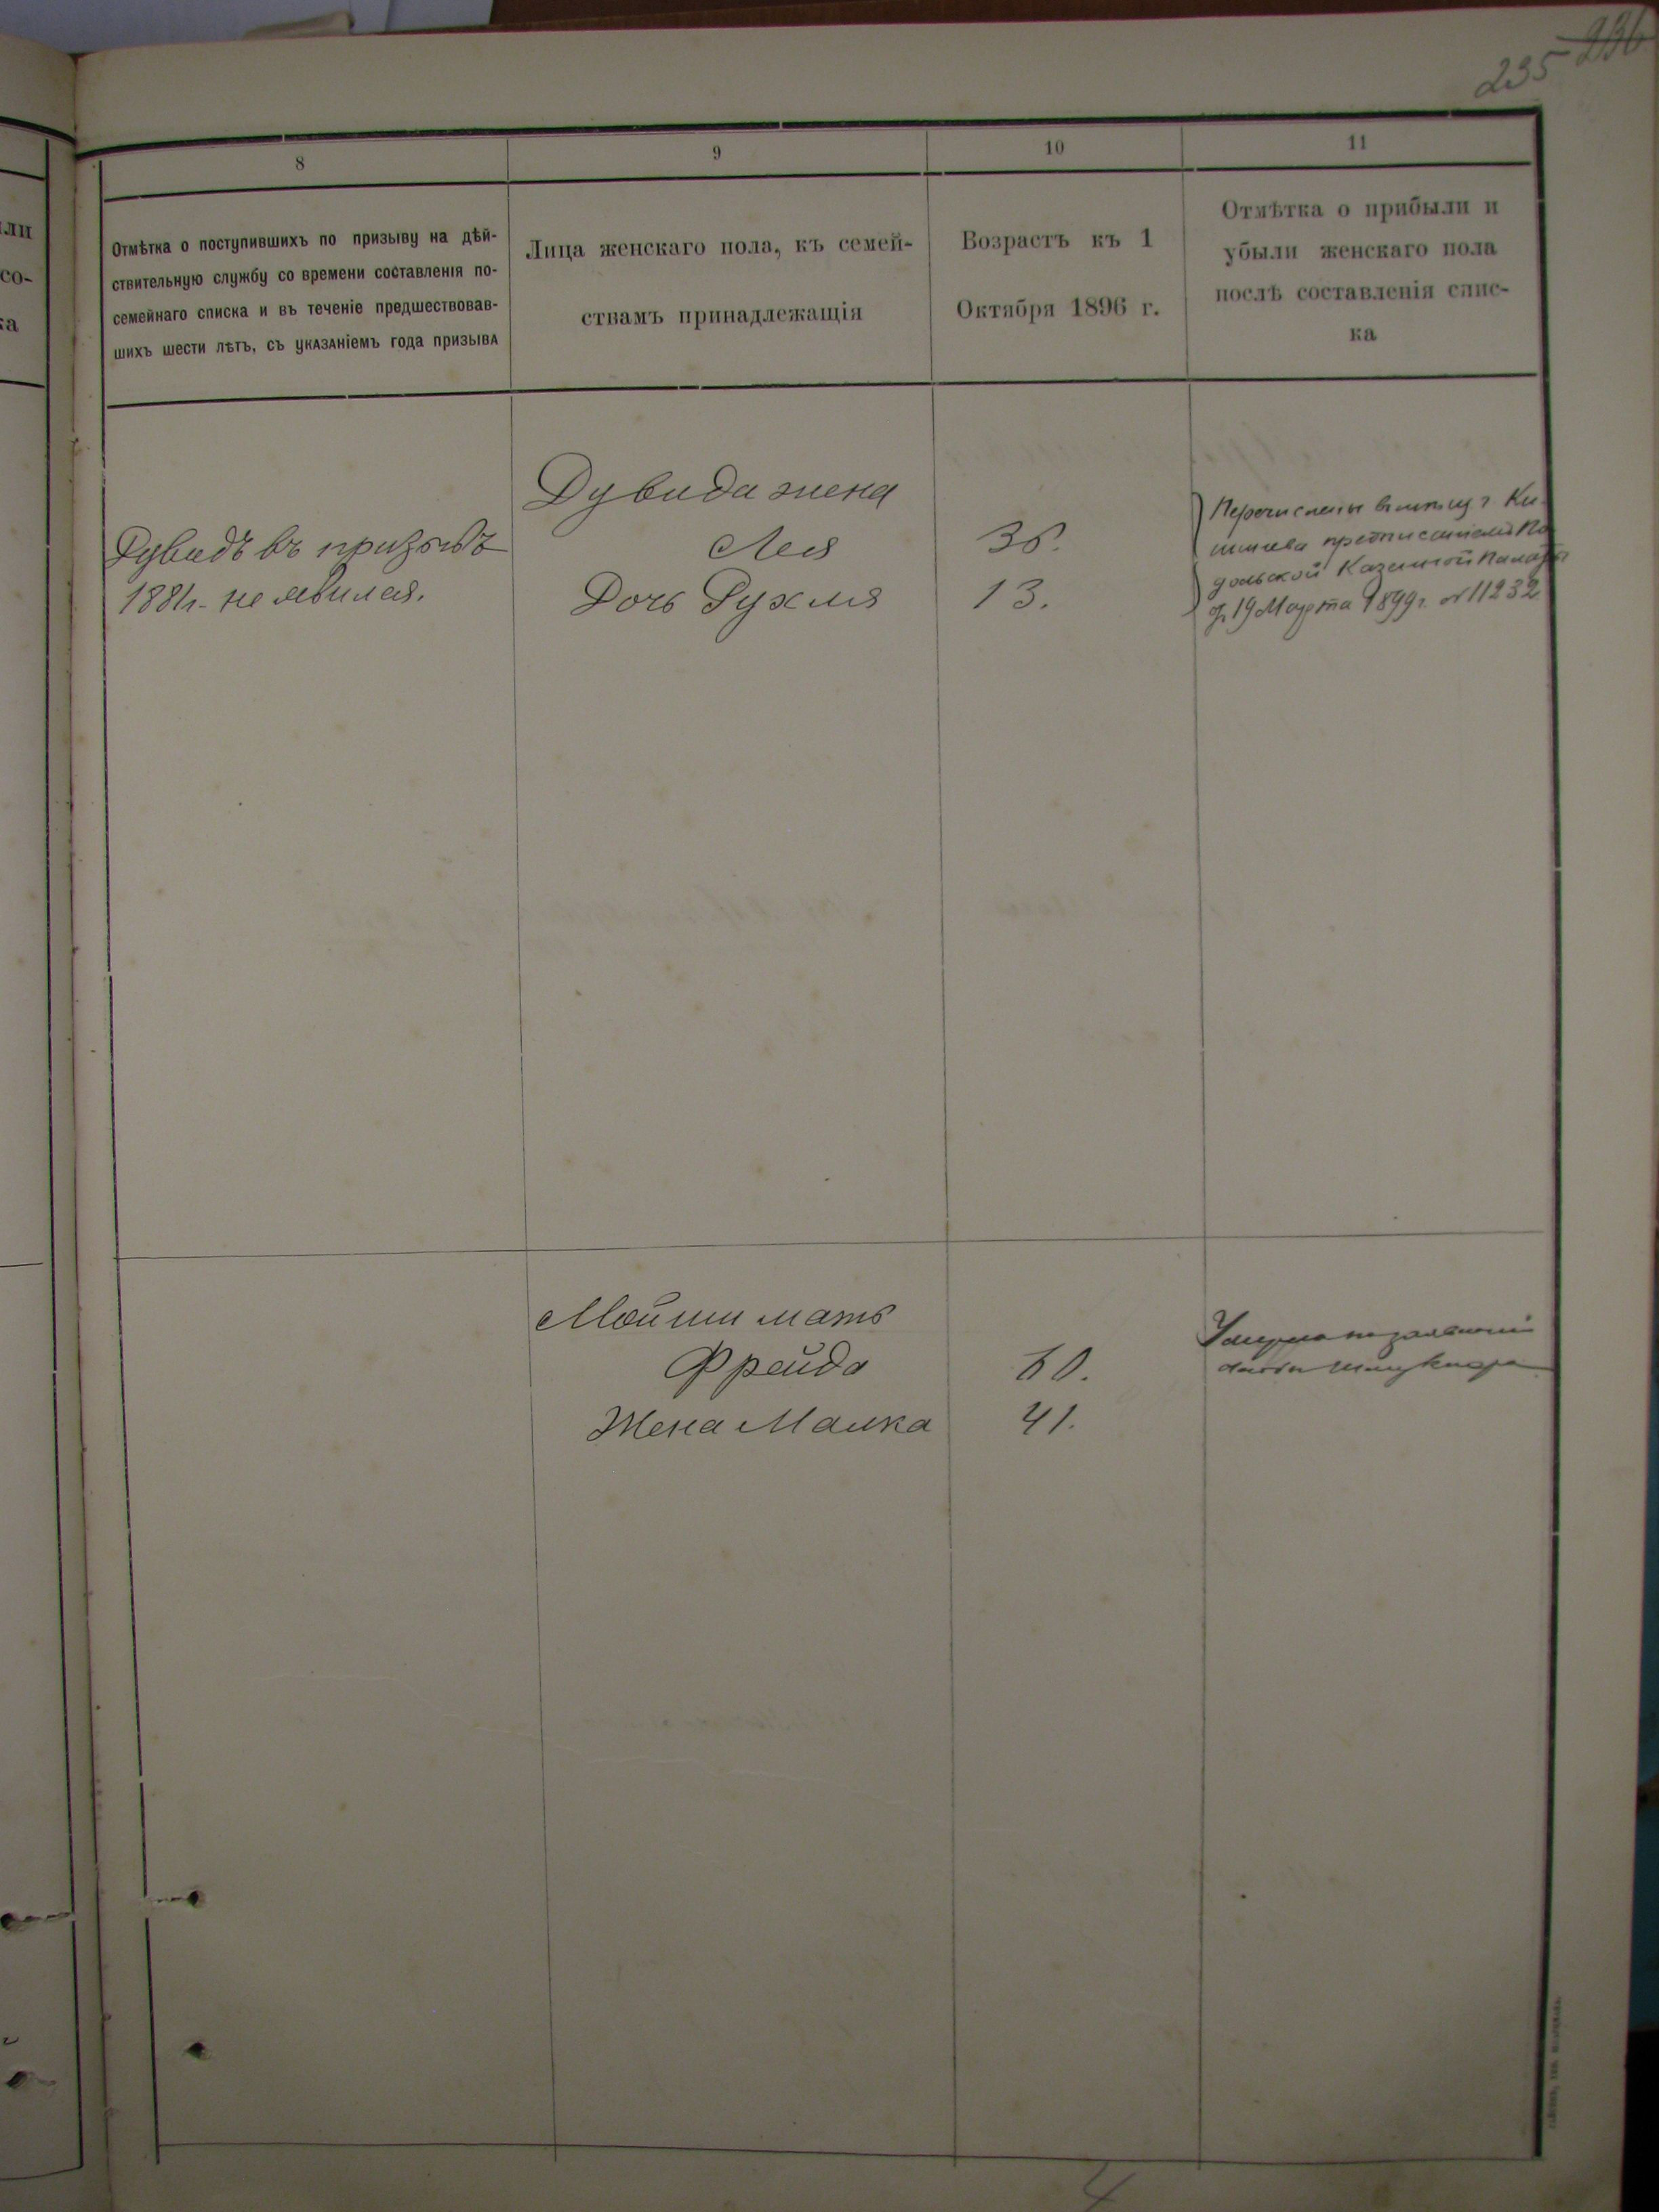 235 236
8
9
10
11
Отмѣтка о поступившихъ по призыву на дѣй-
ствительную службу со времени составленія по-
семейнаго списка и въ теченіе предшествовав-
шихъ шести лѣтъ, съ указаніемъ года призыва
Лица женскаго пола, къ семей-
ствамъ принадлежащія
Возрастъ къ 1
Октября 1896 г.
Отмѣтка о прибыли и
убыли женскаго пола
послѣ составленія спис-
ка
Дувидъ въ призывъ
1881 г. не явился.
Дувида жена
Лея
Дочь Рухля
36.
13.
Перечислены г. Ки-
шинева предписаніемъ По
дольской Казенной Палаты
19 Марта 1899 г. № 11232
Мойши мать
Фрейда
Жена Малка
60.
41.
Умерла